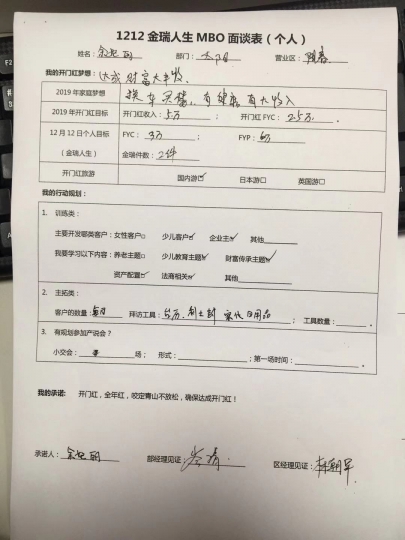 1212 金瑞人生 MBO 面谈表（个人）
姓名： 部门： 营业区：
我的开门红梦想：达成财富大丰收
2019 年家庭梦想 换车买楼，有健康有大收入
2019 年开门红目标 开门红收入：5万 ； 开门红 FYC：25万 .
12 月 12 日个人目标 FYC：3万 ； FYP：6万
（金瑞人生） 金瑞件数：2件
开门红旅游 国内游☑ 日本游□ 英国游□
我的行动规划：
1. 训练类：
主要开发哪类客户：女性客户□ 少儿客户☑ 企业主☑ 其他
我要学习以下内容：养老主题□ 少儿教育主题☑ 财富传承主题☑
资产配置☑ 法商相关☑ 其他
2. 主拓类：
客户的数量：每日 拜访工具：台历、 日用品 ； 工具数量： .
3. 有规划参加产说会？
小交会： 场； 形式： ；第一场时间： .
我的承诺： 开门红，全年红，咬定青山不放松，确保达成开门红！
承诺人： 部经理见证： 区经理见证：